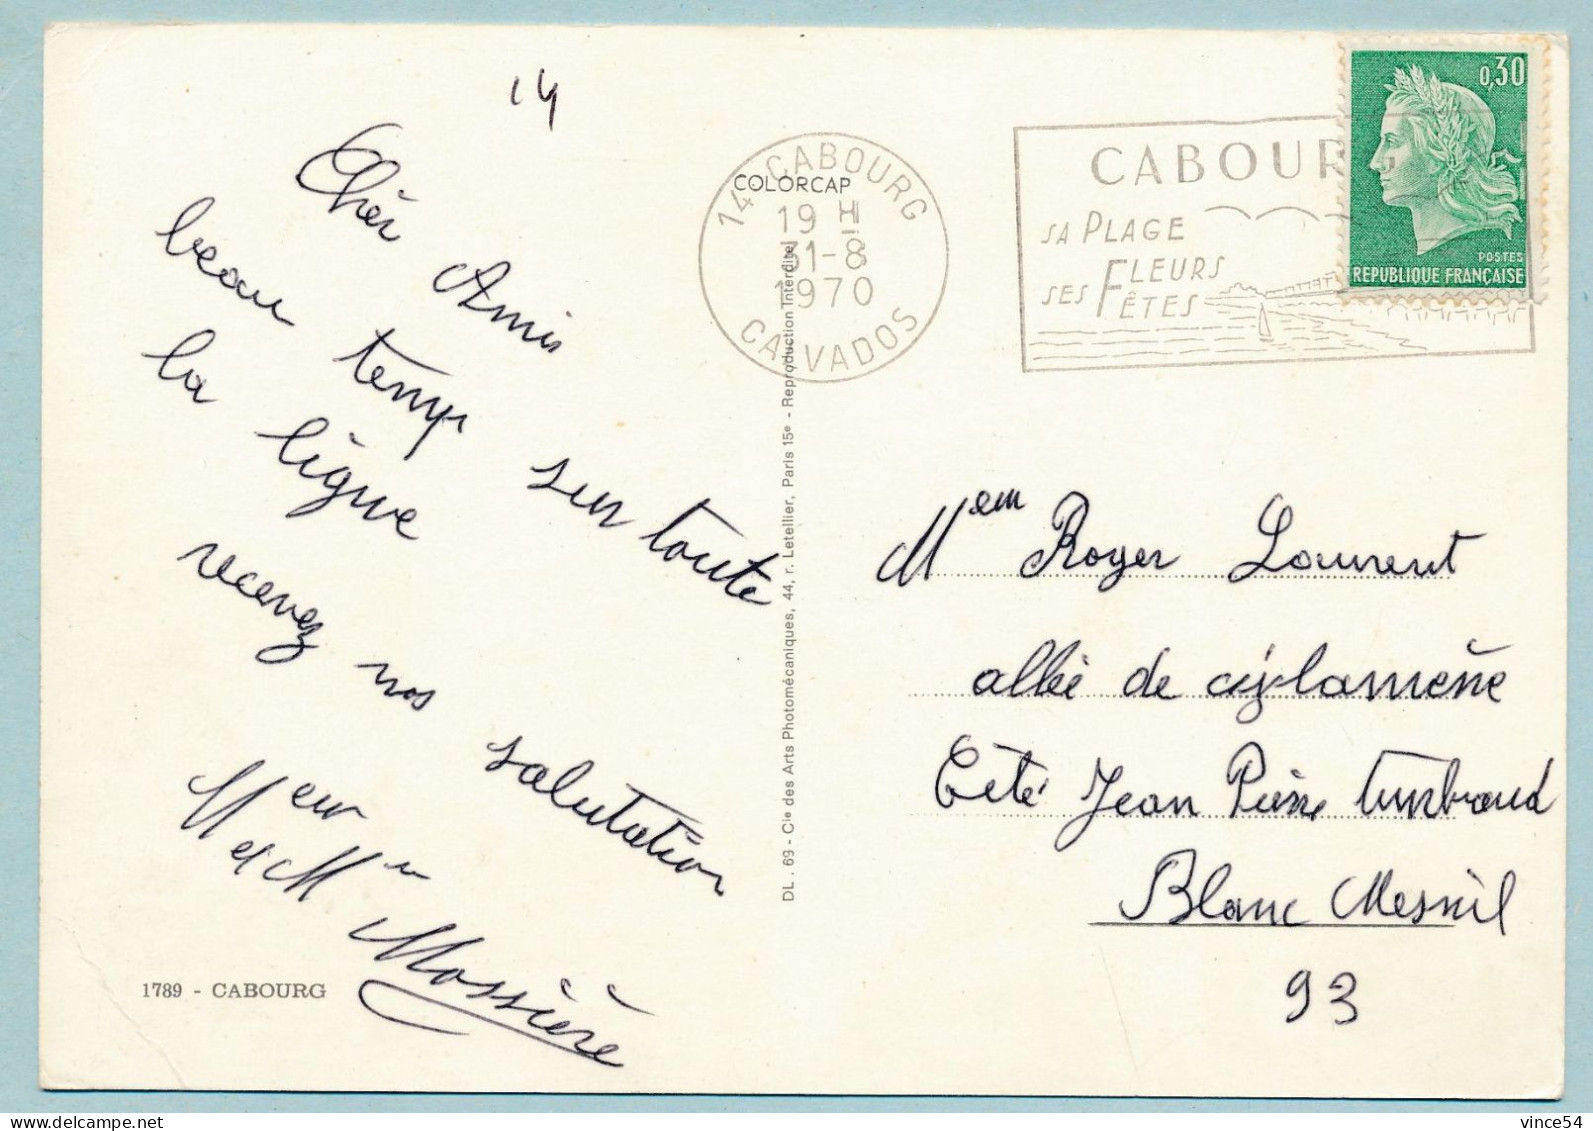 14
Cher Amis
beau temps sur toute
la ligne
recevez nos salutation
Meur
et Mm Mossière
1789 - CABOURG
COLORCAP
DL . 69 - Cie des Arts Photomécaniques, 44, r. Letellier, Paris 15e - Reproduction Interdite
14 - CABOURG
19 H
31-8
1970
CALVADOS
CABOURG
SA PLAGE
SES FLEURS
FÊTES
0,30
POSTES
REPUBLIQUE FRANÇAISE
Mem Roger Laurent
allée de
Cité Jean Pierre
Blanc Mesnil
93
vince54